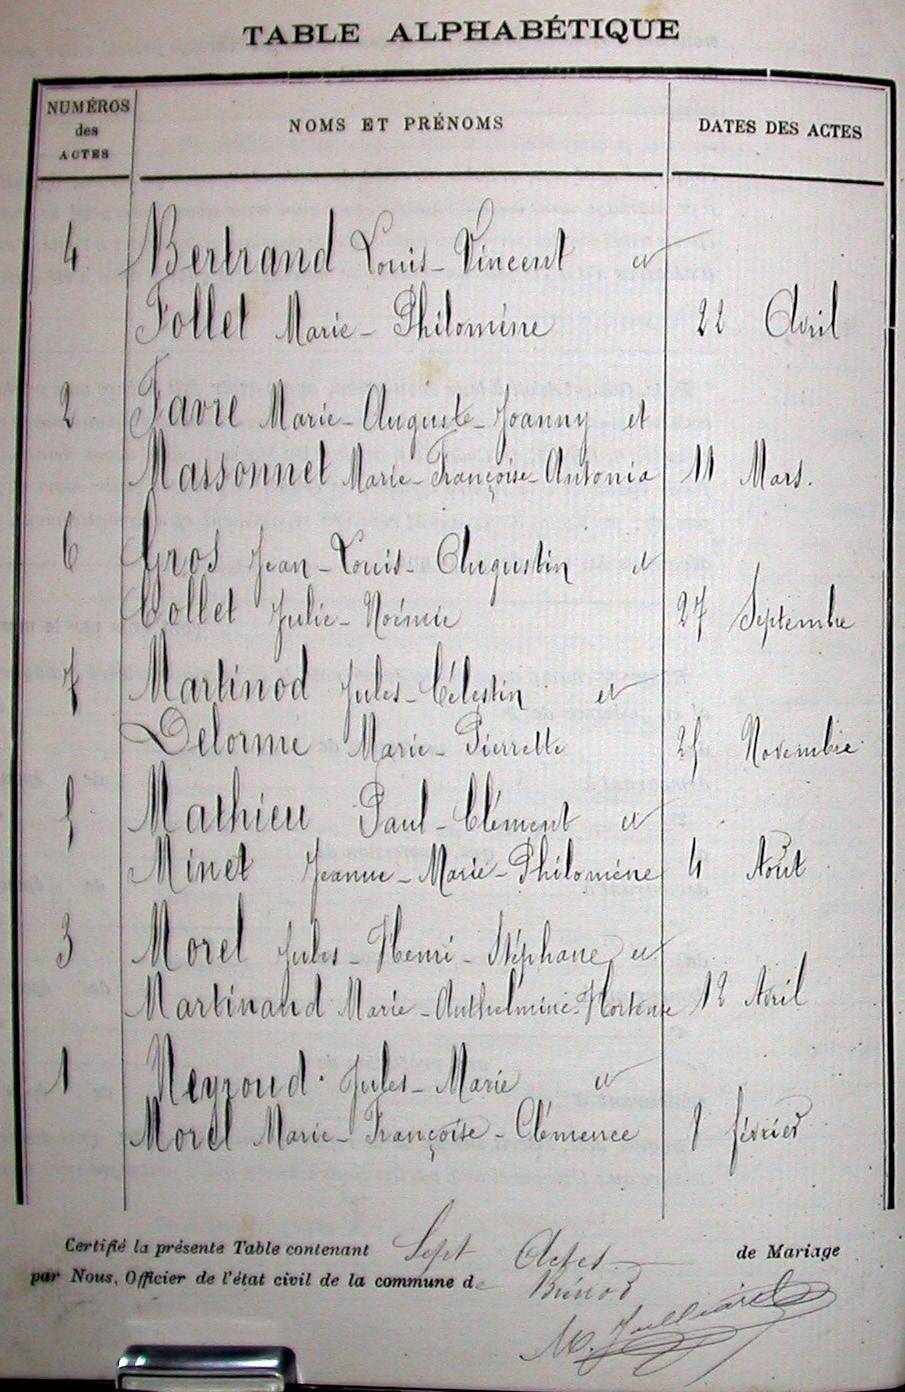 TABLE ALPHABÉTIQUE
NUMÉROS des ACTES NOMS ET PRÉNOMS DATES DES ACTES
4 Bertrand Louis-Vincent et
Follet Marie-Philomène 22 Avril
2 Favre Marie-Auguste-Joanny et
Massonnet Marie-Françoise-Antonia 11 Mars.
6 Gros Jean-Louis-Augustin et
Collet Julie-Noémie 27 Septembre
7 Martinod Jules-Célestin et
Delorme Marie-Pierrette 25 Novembre
5 Mathieu Paul-Clément et
Minet Jeanne-Marie-Philomène 4 Août
3 Morel Jules-Henri-Stéphane et
Martinand Marie-Anthelmine-Hortense 12 Avril
1 Neyroud Jules-Marie et
Morel Marie-Françoise-Clémence 8 février
Certifié la présente Table contenant Sept Actes de Mariage
par Nous, Officier de l'état civil de la commune de Brénod
M. Julliard